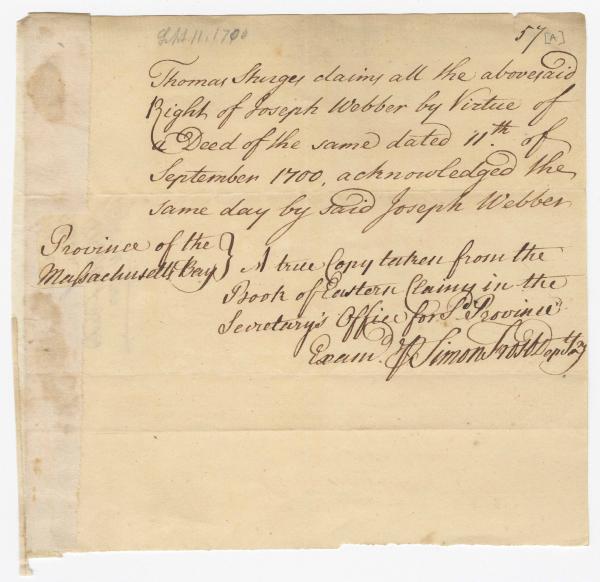 Sept. 11. 1700
57 [A]
Thomas Sturges claims all the abovesaid
Right of Joseph Webber by Virtue of
a Deed of the same dated 11th. of
September 1700, acknowledged the
same day by said Joseph Webber
Province of the
Massachusetts Bay } A true Copy taken from the
Book of Eastern Claims in the
Secretary's Office for sd. Province
Examd. Pr Simon Frost Depty Secry